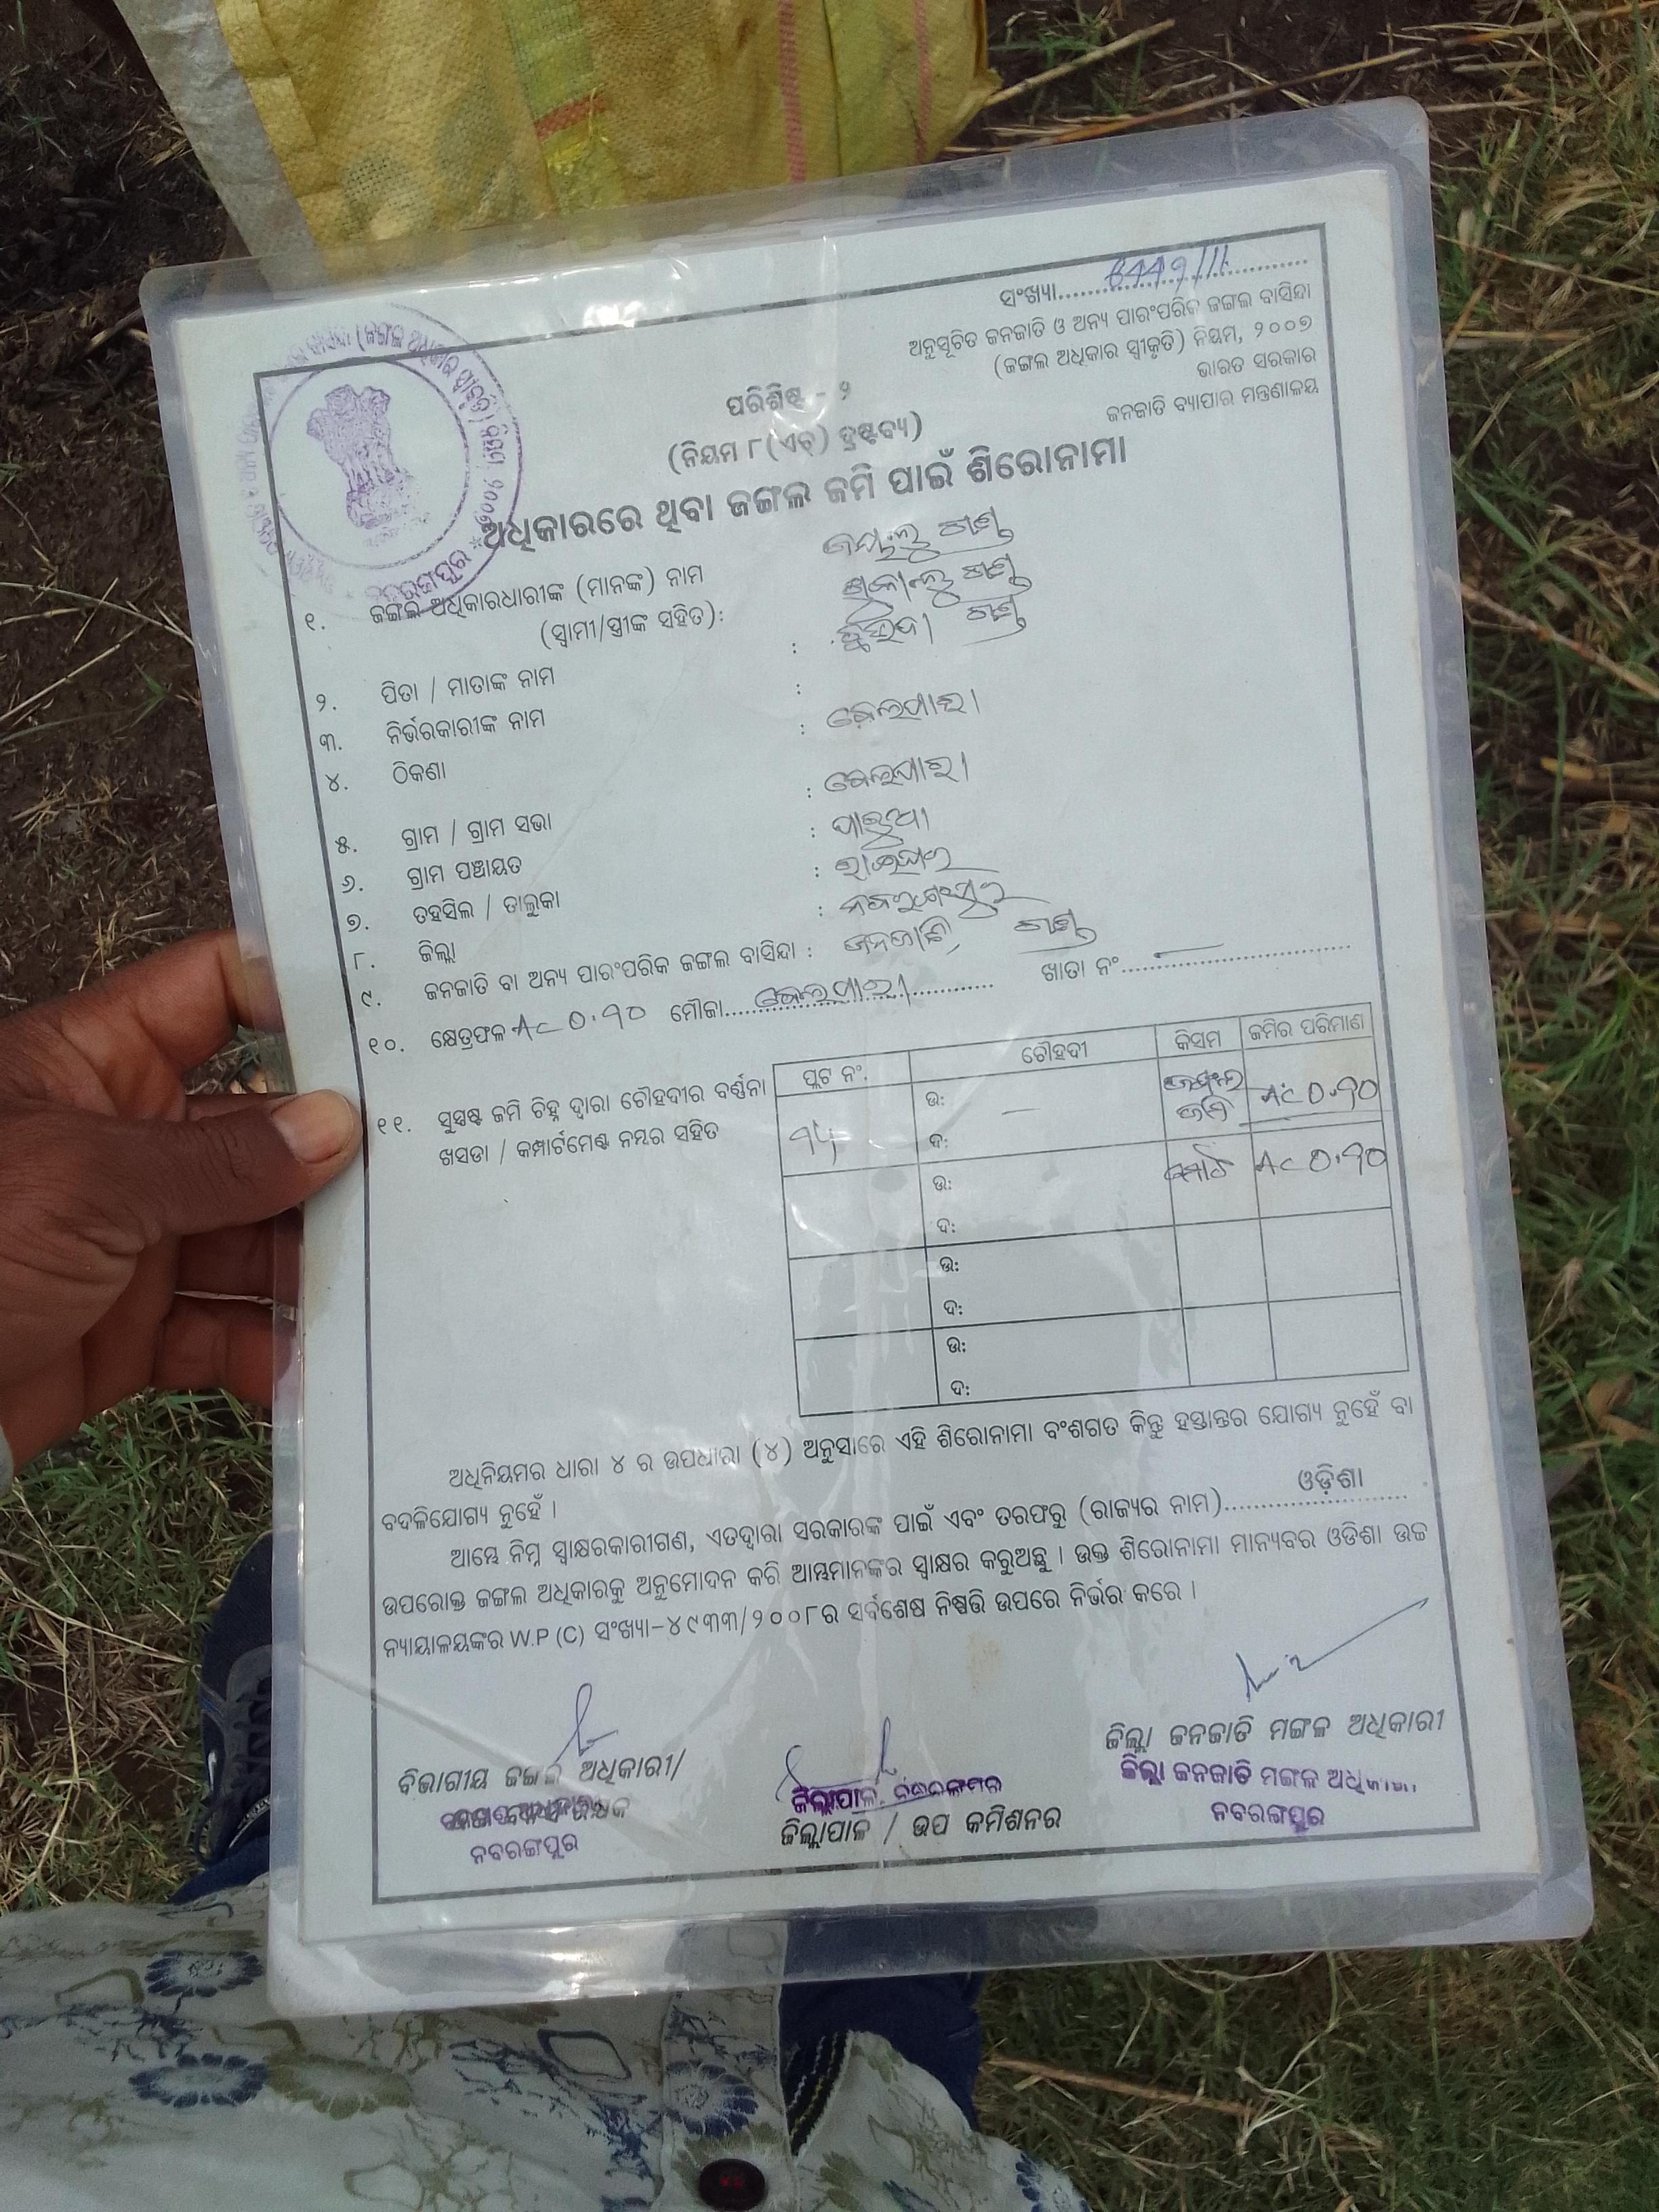 ସଂଖ୍ୟା..........
ଅନୁସୂଚିତ ଜନଜାତି ଓ ଅନ୍ୟ ପାରଂପରିକ ଜଙ୍ଗଲ ବାସିନ୍ଦା
(ଜଙ୍ଗଲ ଅଧିକାର ସ୍ୱୀକୃତି) ନିୟମ, ୨୦୦୭
ଭାରତ ସରକାର
ଜନଜାତି ବ୍ୟାପାର ମନ୍ତ୍ରଣାଳୟ
ପରିଶିଷ୍ଟ - ୨
(ନିୟମ ୮(ଏଚ୍) ଦ୍ରଷ୍ଟବ୍ୟ)
ଅଧିକାରରେ ଥିବା ଜଙ୍ଗଲ ଜମି ପାଇଁ ଶିରୋନାମା
୧. ଜଙ୍ଗଲ ଅଧିକାରଧାରୀଙ୍କ (ମାନଙ୍କ) ନାମ ଗଣ୍ଡ
(ସ୍ୱାମୀ/ସ୍ତ୍ରୀଙ୍କ ସହିତ): ଗଣ୍ଡ
୨. ପିତା / ମାତାଙ୍କ ନାମ : ଗଣ୍ଡ
୩. ନିର୍ଭରକାରୀଙ୍କ ନାମ :
୪. ଠିକଣା :
୫. ଗ୍ରାମ / ଗ୍ରାମ ସଭା :
୬. ଗ୍ରାମ ପଞ୍ଚାୟତ :
୭. ତହସିଲ / ତାଲୁକା : ରାଇଘର
୮. ଜିଲ୍ଲା : ନବରଂଗପୁର
୯. ଜନଜାତି ବା ଅନ୍ୟ ପାରଂପରିକ ଜଙ୍ଗଲ ବାସିନ୍ଦା : ଜନଜାତି, ଗଣ୍ଡ
୧୦. କ୍ଷେତ୍ରଫଳ Ac ୦.୩୦ ମୌଜା.......... ଖାତା ନଂ..........
୧୧. ସୁସ୍ପଷ୍ଟ ଜମି ଚିହ୍ନ ଦ୍ୱାରା ଚୌହଦୀର ବର୍ଣ୍ଣନା
ଖସଡା / କମ୍ପାର୍ଟମେଣ୍ଟ ନମ୍ବର ସହିତ
ପ୍ଲଟ ନଂ. ଚୌହଦୀ କିସମ ଜମିର ପରିମାଣ
ଉ: — ଜଙ୍ଗଲ
ଦ: ଜମି
ଉ: ମୋଟ
ଦ:
ଉ:
ଦ:
ଉ:
ଦ:
ଅଧିନିୟମର ଧାରା ୪ ର ଉପଧାରା (୪) ଅନୁସାରେ ଏହି ଶିରୋନାମା ବଂଶଗତ କିନ୍ତୁ ହସ୍ତାନ୍ତର ଯୋଗ୍ୟ ନୁହେଁ ବା
ବଦଳିଯୋଗ୍ୟ ନୁହେଁ ।
ଆମ୍ଭେ ନିମ୍ନ ସ୍ୱାକ୍ଷରକାରୀଗଣ, ଏତଦ୍ୱାରା ସରକାରଙ୍କ ପାଇଁ ଏବଂ ତରଫରୁ (ରାଜ୍ୟର ନାମ).....ଓଡ଼ିଶା.....
ଉପରୋକ୍ତ ଜଙ୍ଗଲ ଅଧିକାରକୁ ଅନୁମୋଦନ କରି ଆମ୍ଭମାନଙ୍କର ସ୍ୱାକ୍ଷର କରୁଅଛୁ । ଉକ୍ତ ଶିରୋନାମା ମାନ୍ୟବର ଓଡିଶା ଉଚ୍ଚ
ନ୍ୟାୟାଳୟଙ୍କର W.P (C) ସଂଖ୍ୟା-୪୯୩୩/୨୦୦୮ର ସର୍ବଶେଷ ନିଷ୍ପତ୍ତି ଉପରେ ନିର୍ଭର କରେ ।
ବିଭାଗୀୟ ଜଙ୍ଗଲ ଅଧିକାରୀ/
ନବରଙ୍ଗପୁର
ଜିଲ୍ଲାପାଳ
ଜିଲ୍ଲାପାଳ / ଉପ କମିଶନର
ଜିଲ୍ଲା ଜନଜାତି ମଙ୍ଗଳ ଅଧିକାରୀ
ଜିଲ୍ଲା ଜନଜାତି ମଙ୍ଗଳ ଅଧିକାରୀ
ନବରଙ୍ଗପୁର